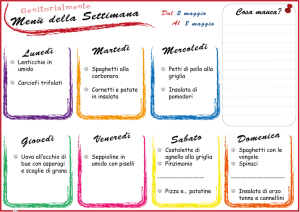 Genitorialmente
Menù della Settimana
Dal 2 maggio
Al 8 maggio
Cosa manca?
Lunedì
Lenticchie in
umido
Carciofi trifolati
Martedì
Spaghetti alla
carbonara
Cornetti e patate
in insalata
Mercoledì
Petti di pollo alla
griglia
Insalata di
pomodori
Giovedì
Uova all'occhio di
bue con asparagi
e scaglie di grana
Venerdì
Seppioline in
umido con piselli
Sabato
Costolette di
agnello alla griglia
Pinzimonio
--------------------
Pizza e... patatine
Domenica
Spaghetti con le
vongole
Spinaci
--------------------
Insalata di orzo
tonno e cannellini